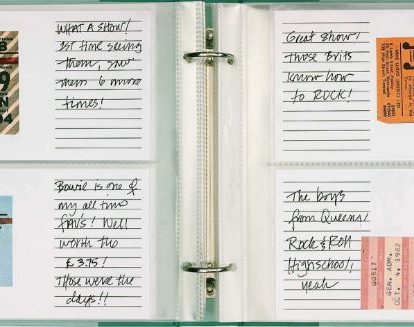 WHAT A SHOW!
1ST time seeing
them, saw
them 6 more
times!
Great show!
Those Brits
know how
to ROCK!
Bowie is one of
my all time
FAV'S! Well
worth the
£ 3.75!
Those were the
days!!
The boys
from Queens!
Rock & Roll
Highschool,
yeah
00517
GEN. ADM.
OCT. 4, 1982